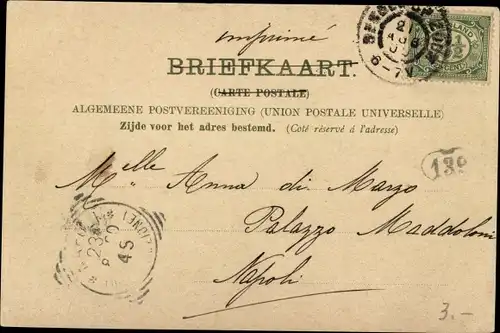 imprimé
BRIEFKAART.
(CARTE POSTALE)
ALGEMEENE POSTVEREENIGING (UNION POSTALE UNIVERSELLE)
Zijde voor het adres bestemd. (Coté réservé á l'adresse)
139
Melle Anna di Marzo
Palazzo Maddaloni
Napoli
3.-